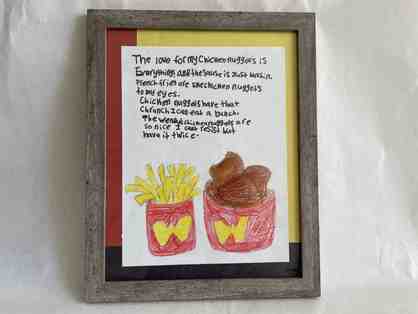 The love for my Chicken nuggets is
Everything and the sauce is Just
French fries are chicken nuggets
to my eyes.
Chicken nuggets have that
Chrunch I can eat a bunch.
The chicken nuggets are
so nice I cant resist but
have it twice.
W W